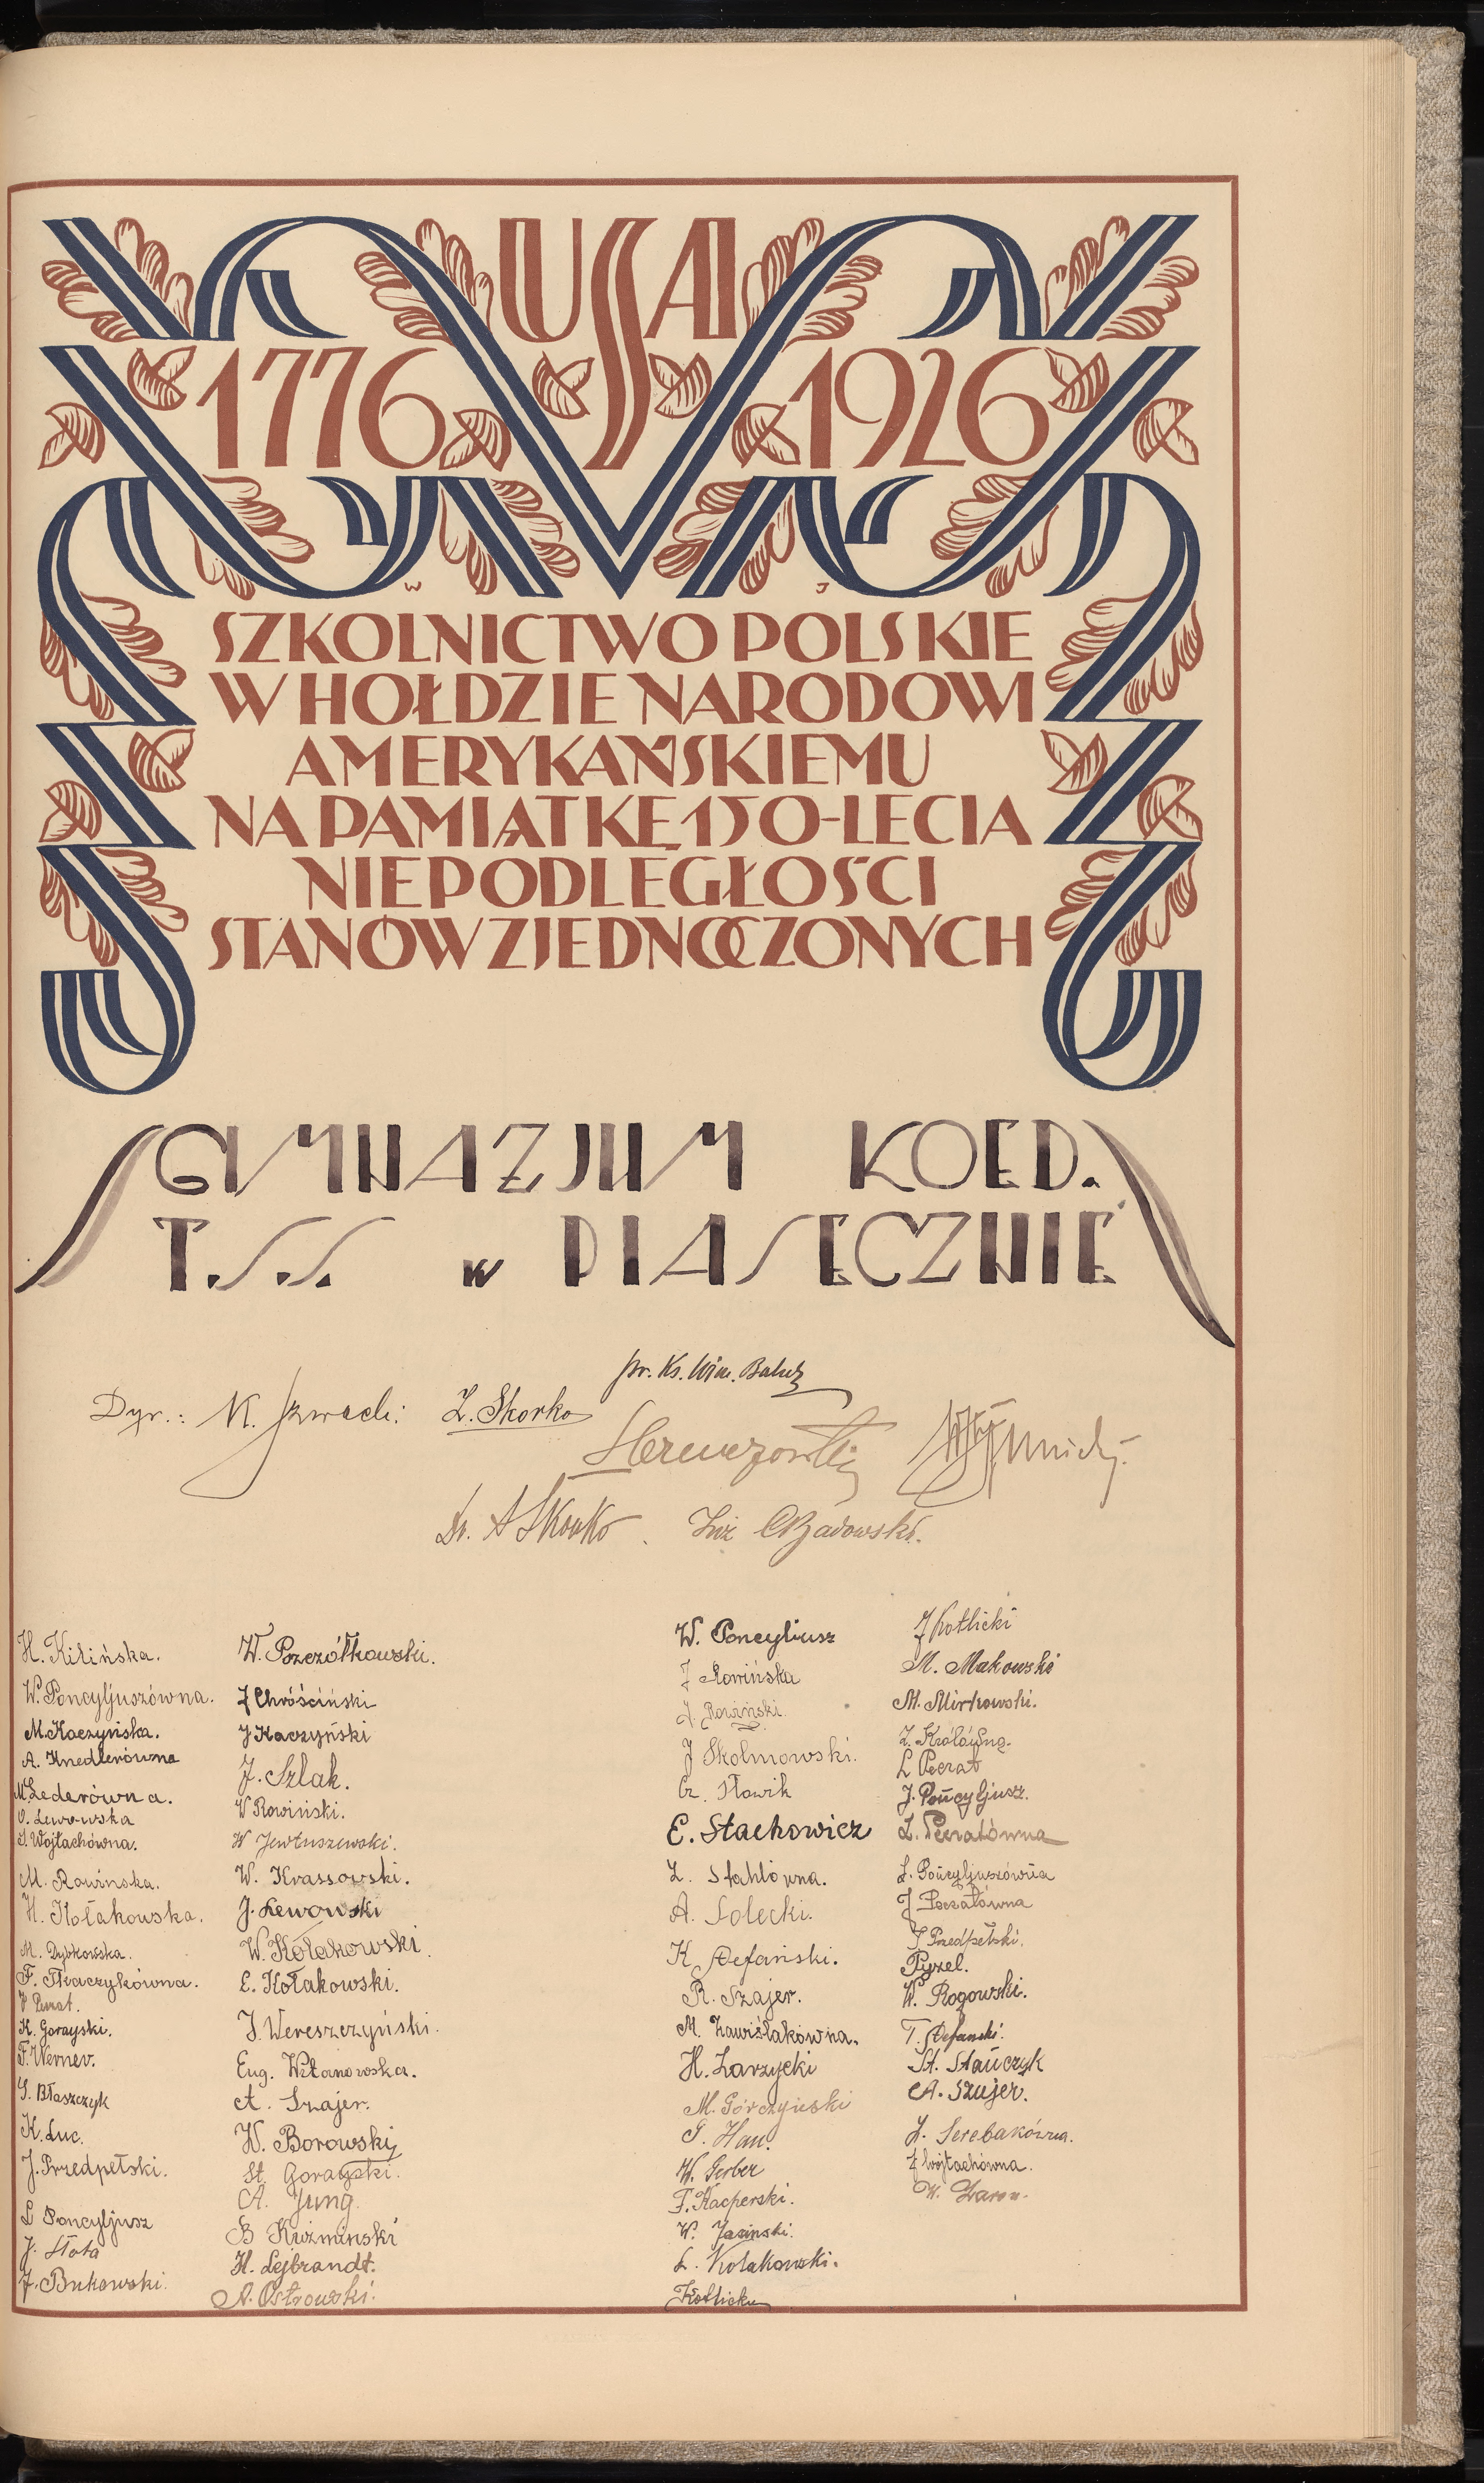 USA
1776 1926
W J
SZKOLNICTWO POLSKIE
W HOŁDZIE NARODOWI
AMERYKAŃSKIEMU
NA PAMIĄTKĘ 150-LECIA
NIEPODLEGŁOŚCI
STANÓW ZJEDNOCZONYCH
GIMNAZJUM KOED.
T.S.S. w PIASECZNIE
pr. Ks. Win.
Dyr.: Z. Skorko
Dr. A Skorko. Inż
H. Kilińska.
W. Poncyljuszówna.
M. Kaczyńska.
A. Knedlerówna
M. Lederówna.
O. Lewowska
S. Wojtachówna.
M. Rawinska.
H. Kołakowska.
M. Dybkowska.
F. Tkaczykówna.
K. Gorayski.
F. Werner.
S. Błaszczyk
K. Luc.
J. Przedpełski.
L Poncyljusz
J. Słota
J. Bukowski.
W. Pszczółkowski.
J Chróściński
J Kaczyński
J. Szlak.
W Rowiński.
W Jewtuszewski.
W. Krassowski.
J. Lewowski
W. Kołakowski.
E. Kołakowski.
J. Wereszczyński.
Eug. Witanowska.
A. Szajer.
W. Borowski
St. Gorayski.
A. Jung.
B Kuźminski
H. Lejbrandt.
A. Ostrowski.
W. Poncyliusz
J Rowińska
J. Rowiński.
J Skolmowski.
Cz. Słowik
E. Stachowicz
Z. Stahlówna.
A. Solecki.
K Stefański.
R. Szajer.
M. Zawiślakówna.
H. Zarzycki
M. Górczyński
G. Hau.
W. Gerber
F. Kacperski.
W. Jasinski.
L. Kołakowski.
J Kotlicki
M. Makowski
M. Mirkowski.
Z. Królówna.
L Peczat
J. Pońcyljusz.
L. Pońcyljuszówna
J Przedpełski.
Pyzel.
W. Rogowski.
T. Stefanski.
St. Stańczyk
A. Szujer.
J. Serebakówna.
J Wójtachówna.